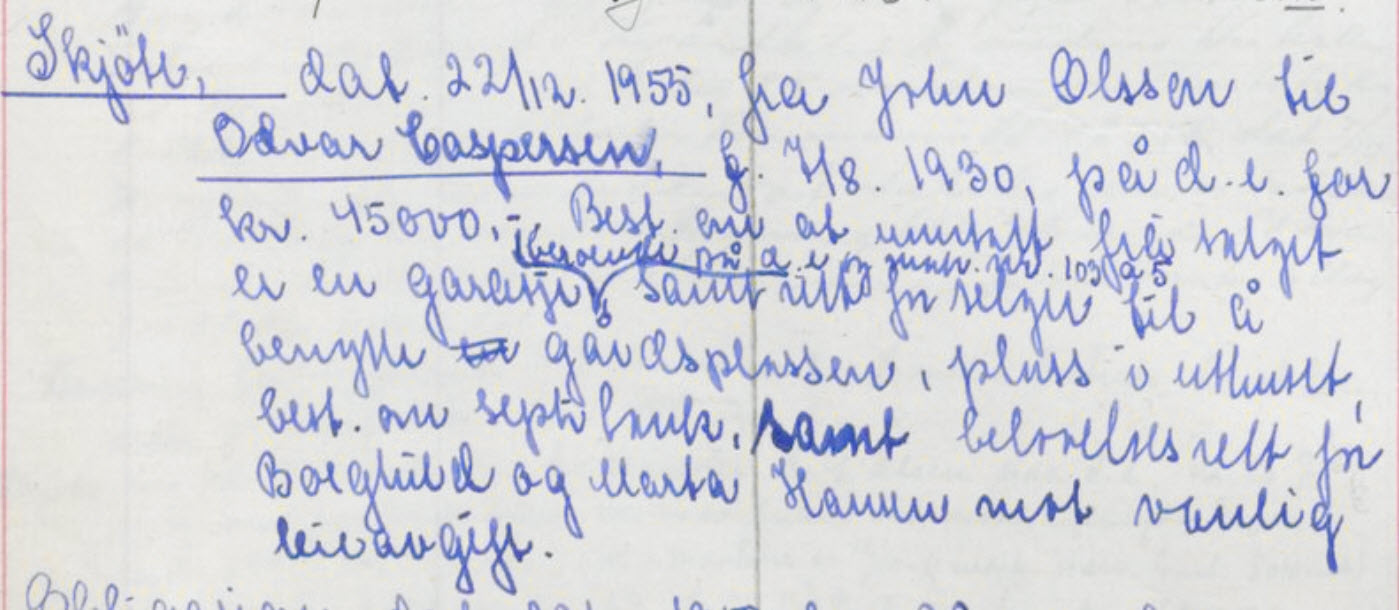 Skjöte, dat. 22/12. 1955, fra John Olssen til
Odvar Caspersen, f. 7/8. 1930, på d.e. for
kr. 45000,- Best. om at unntatt fra salget
beroende på d.e. og matr. nr. 103 a5
er en garasje, samt rett for selger til å
benytte en gårdsplassen, plass i uthuset,
best. om septiktank, samt beboelsesrett for
Borghild og Marta Hansen mot vanlig
leieavgift.